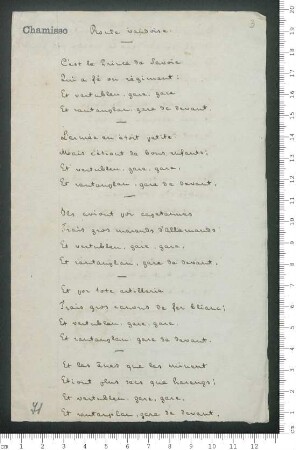 Chamisso
Ronde vaudoise.
3
C'est le Prince de Savoie
Qui a fé on régiment;
Et vertubleu, gare, gare
Et rantanplan, gare de devant.
L'armée en étoit petite
Mais c'étiont de bons enfants;
Et vertubleu, gare, gare,
Et rantanplan, gare de devant,
Ils aviont por capetannes
Trais gros marands d'Allemands
Et vertubleu, gare, gare,
Et rantanplan, gare de devant,
Et por tote artillerie
Trais gros canons de fer blianc;
Et vertubleu, gare, gare,
Et rantanplan gare de devant,
Et les ânes que les menent
Etiont plus secs que harengs;
Et vertubleu, gare, gare,
Et rantanplan, gare de devant,
71